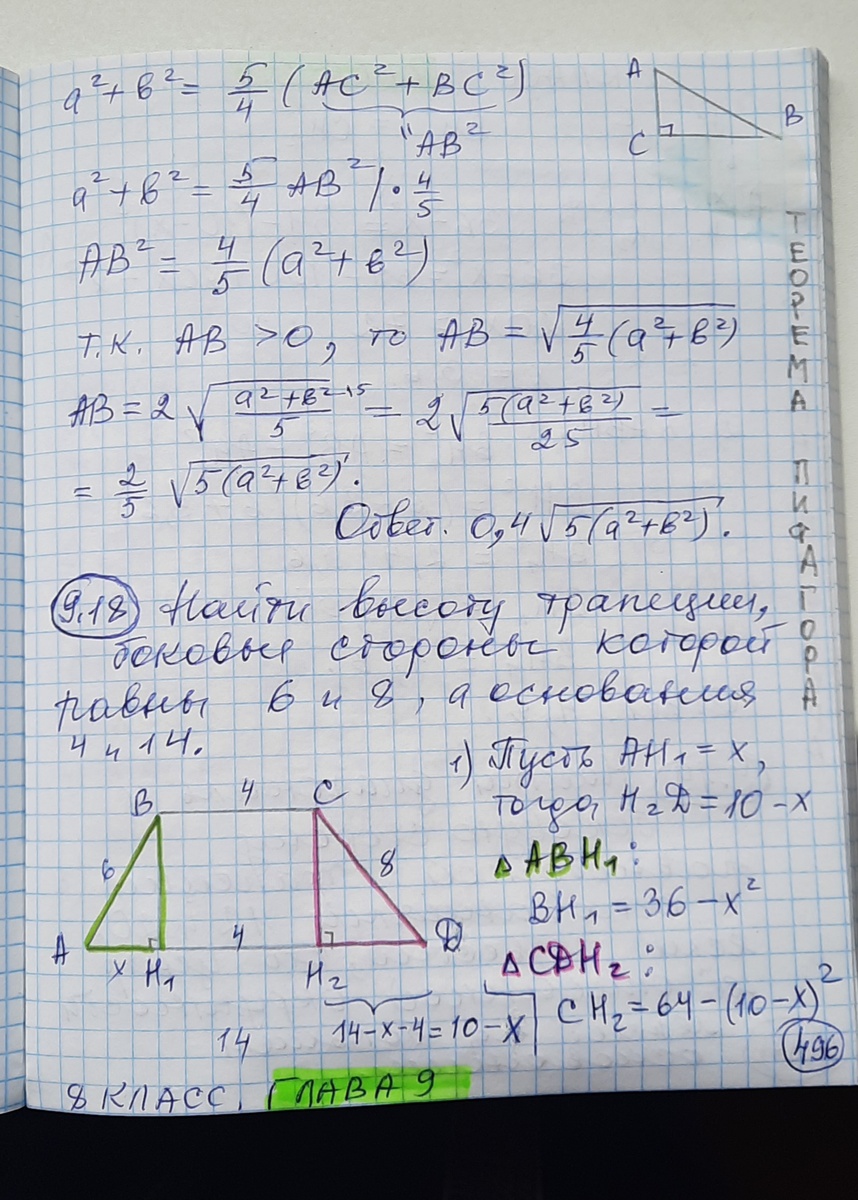 a² + b² = 5/4 (AC² + BC²)
"AB²
A
B
C
a² + b² = 5/4 AB² | · 4/5
AB² = 4/5 (a² + b²)
т.к. AB > 0, то AB = √(4/5 (a² + b²))
AB = 2 √((a² + b²)/5) ·5 = 2 √(5(a² + b²)/25) =
= 2/5 √(5(a² + b²)).
Ответ. 0,4 √(5(a² + b²)).
ТЕОРЕМА ПИФАГОРА
9.18 Найти высоту трапеции,
боковые стороны которой
равны 6 и 8, а основания
4 и 14.
1) Пусть AH₁ = x,
тогда H₂D = 10 - x
△ABH₁:
BH₁ = 36 - x²
△CDH₂:
CH₂ = 64 - (10 - x)²
B 4 C
6 8
A x H₁ 4 H₂ D
14
14 - x - 4 = 10 - x
496
8 КЛАСС. ГЛАВА 9